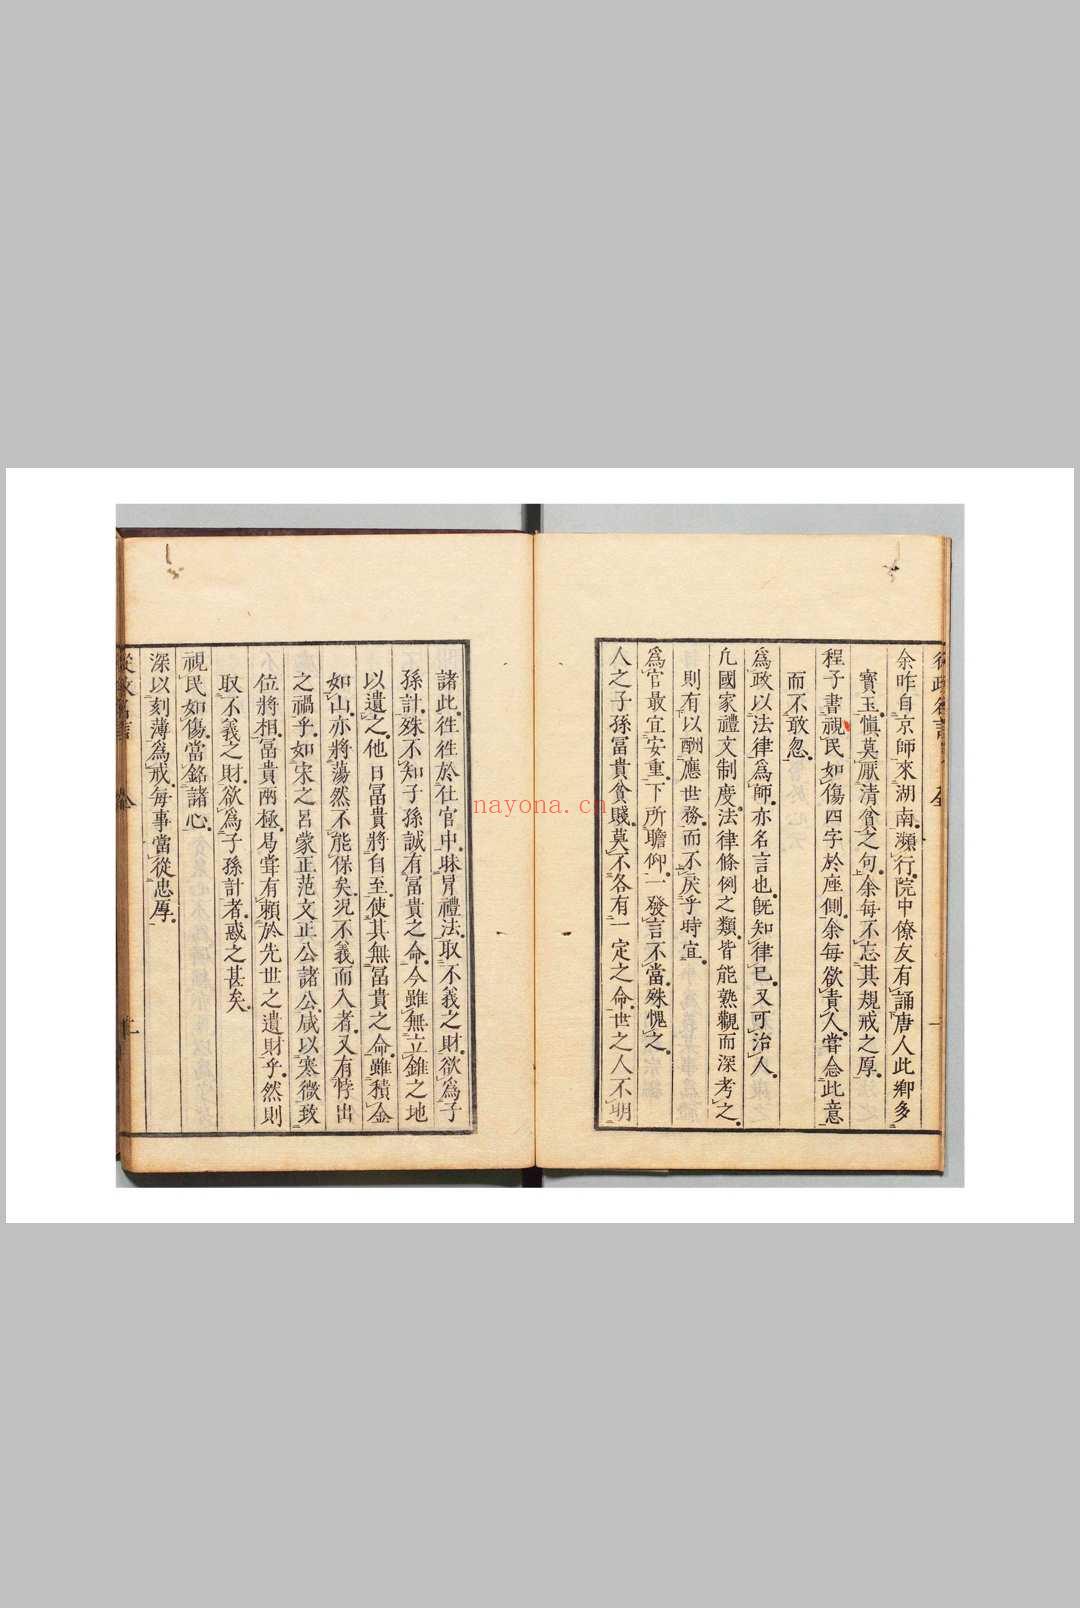 余昨自京師來湖南瀕行院中僚友有誦唐人此鄉多
寶玉愼莫厭清貧之句余每不忘其規戒之厚
程子書視民如傷四字於座側余每欲責人嘗念此意
而不敢忽
爲政以法律爲師亦名言也旣知律已又可治人
凢國家禮文制度法律條例之類皆能熟觀而深考之
則有以酬應世務而不戾乎時宜
爲官最宜安重下所瞻仰一發言不當殊愧之
人之子孫冨貴貧賤莫不各有一定之命世之人不明
nayona.cn
諸此徃徃於仕官中昧冐禮法取不義之財欲爲子
孫計殊不知子孫誠有冨貴之命今雖無立錐之地
以遺之他日冨貴將自至使其無冨貴之命雖積金
如山亦將蕩然不能保矣况不義而入者又有悖出
之禍乎如宋之呂蒙正范文正公諸公咸以寒微致
位將相冨貴兩極曷甞有賴於先世之遺財乎然則
取不義之財欲爲子孫計者惑之甚矣
視民如傷當銘諸心
深以刻薄爲戒每事當從忠厚